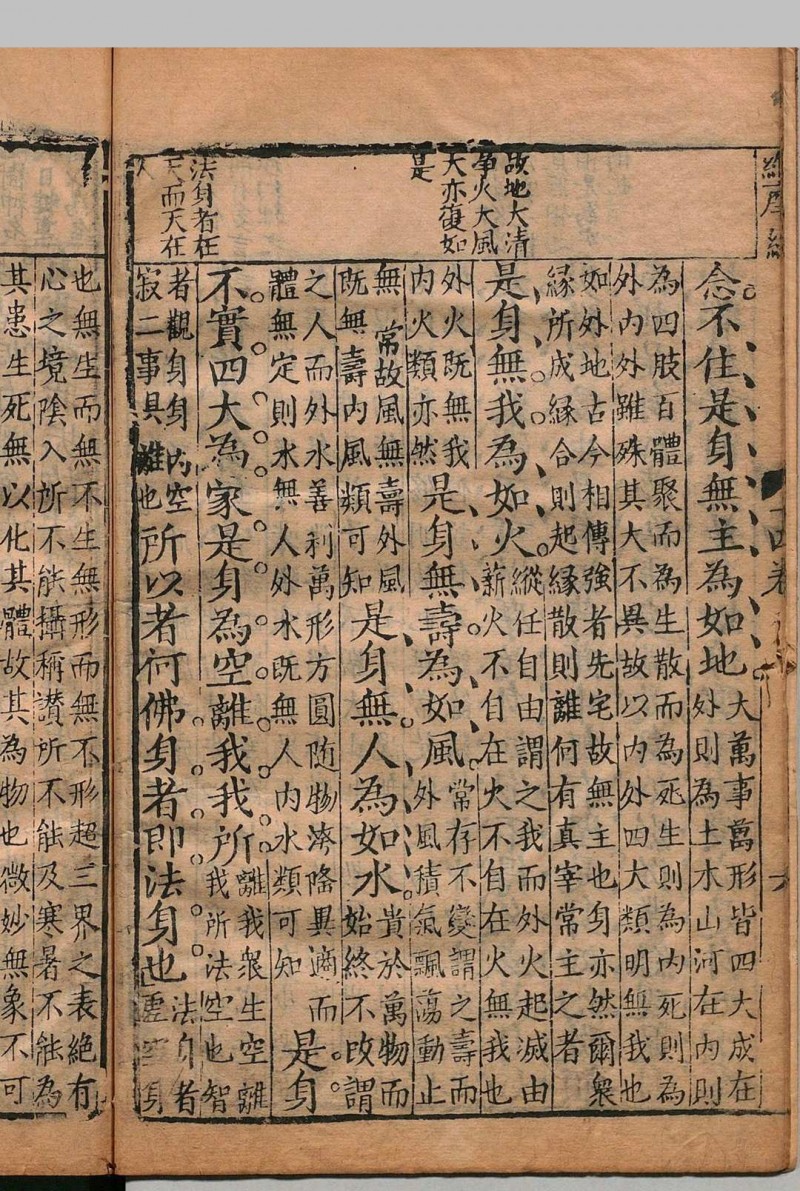 故地大清
爭火大風
大亦復如
是
法身者在
天而天在
人
念不住是身無主為如地
大萬事萬形皆四大成在
外則為土木山河在内則
為四肢百體聚而為生散而為死生則為内死則為
外内外雖殊其大不異故以内外四大類明無我也
如外地古今相傳強者先宅故無主也身亦然爾衆
縁所成縁合則起縁散則離何有真宰常主之者
是身無我為如火
縱任自由謂之我而外火起滅由
薪火不自在火不自在火無我也
外火既無我
内火類亦然
是身無壽為如風
常存不變謂之壽而
外風積氣飄蕩動止
無常故風無壽外風
既無壽内風類可知
是身無人為如水
貴於萬物而
始終不改謂
之人而外水善利萬形方圓随物濟隆異適而
體無定則水無人外水既無人内水類可知
是身
不實四大為家是身為空離我我所
離我衆生空離
我所法空也智
者觀身身内空
寂二事具離也
所以者何佛身者即法身也
法身者
虚空身
也無生而無不生無形而無不形超三界之表絶有
心之境陰入所不能攝稱讃所不能及寒暑不能為
其患生死無以化其體故其為物也微妙無象不可